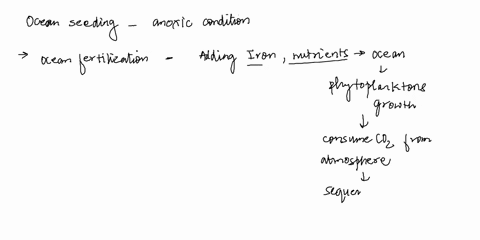 Ocean seeding - anoxic condition
→ ocean fertilication - Adding Iron, nutrients → ocean
↓
phytoplanktons
growth
↓
consume CO2 from
atmosphere
↓
seques